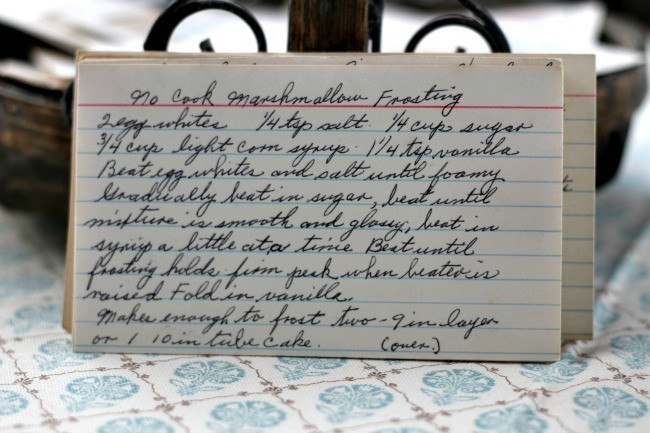 No Cook Marshmallow Frosting
2 egg whites 1/4 tsp salt. 1/4 cup sugar
3/4 cup light corn syrup. 1 1/4 tsp vanilla
Beat egg whites and salt until foamy
Gradually beat in sugar, beat until
mixture is smooth and glossy, beat in
syrup a little at a time Beat until
frosting holds firm peak when beater is
raised Fold in vanilla.
Makes enough to frost two - 9 in layer
or 1 10 in tube cake. (over.)